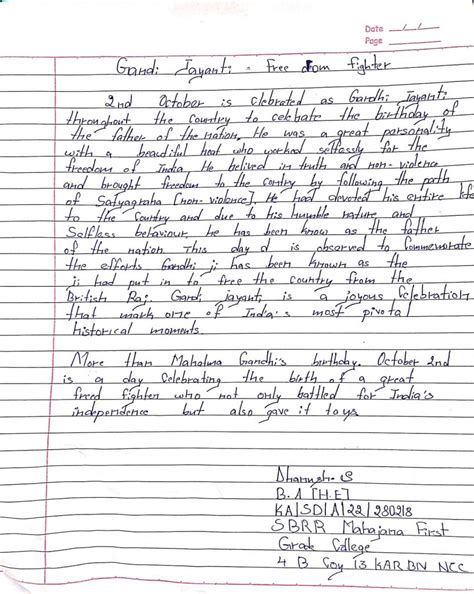 Date / /
Page
Gandi Jayanti - Free dom fighter
2nd October is clebrated as Gandhi Jayanti
throughout the Country to celebate the birthday of
the father of the nation. He was a great parsonality
with a beautiful heat who worked selflassly for the
freedom of India. He belived in truth and non-violence
and brought freedom to the contry by following the path
of Satyagraha [non-violance]. He had devoted his entire life
to the Country and due to his humble nature, and
Selfless behaviour, he has been know as the father
of the nation. This day d is observed to Commemorate
the efforts Gandhi ji has been known as the
ji had put in to free the country from the
British Raj. Gandi jayanti is a joyous Celebration
that mark one of India's most pivotal
historical moments.
More than Mahatma Gandhi's birthday. October 2nd
is a day Celebrating the birth of a great
freed fighter who not only battled for India's
independence but also gave it to us.
Dhanush. S
B.A [H.E]
KA/SD/A/22/280218
SBRR Mahajana First
Grade College
4 B Coy 13 KAR BN NCC